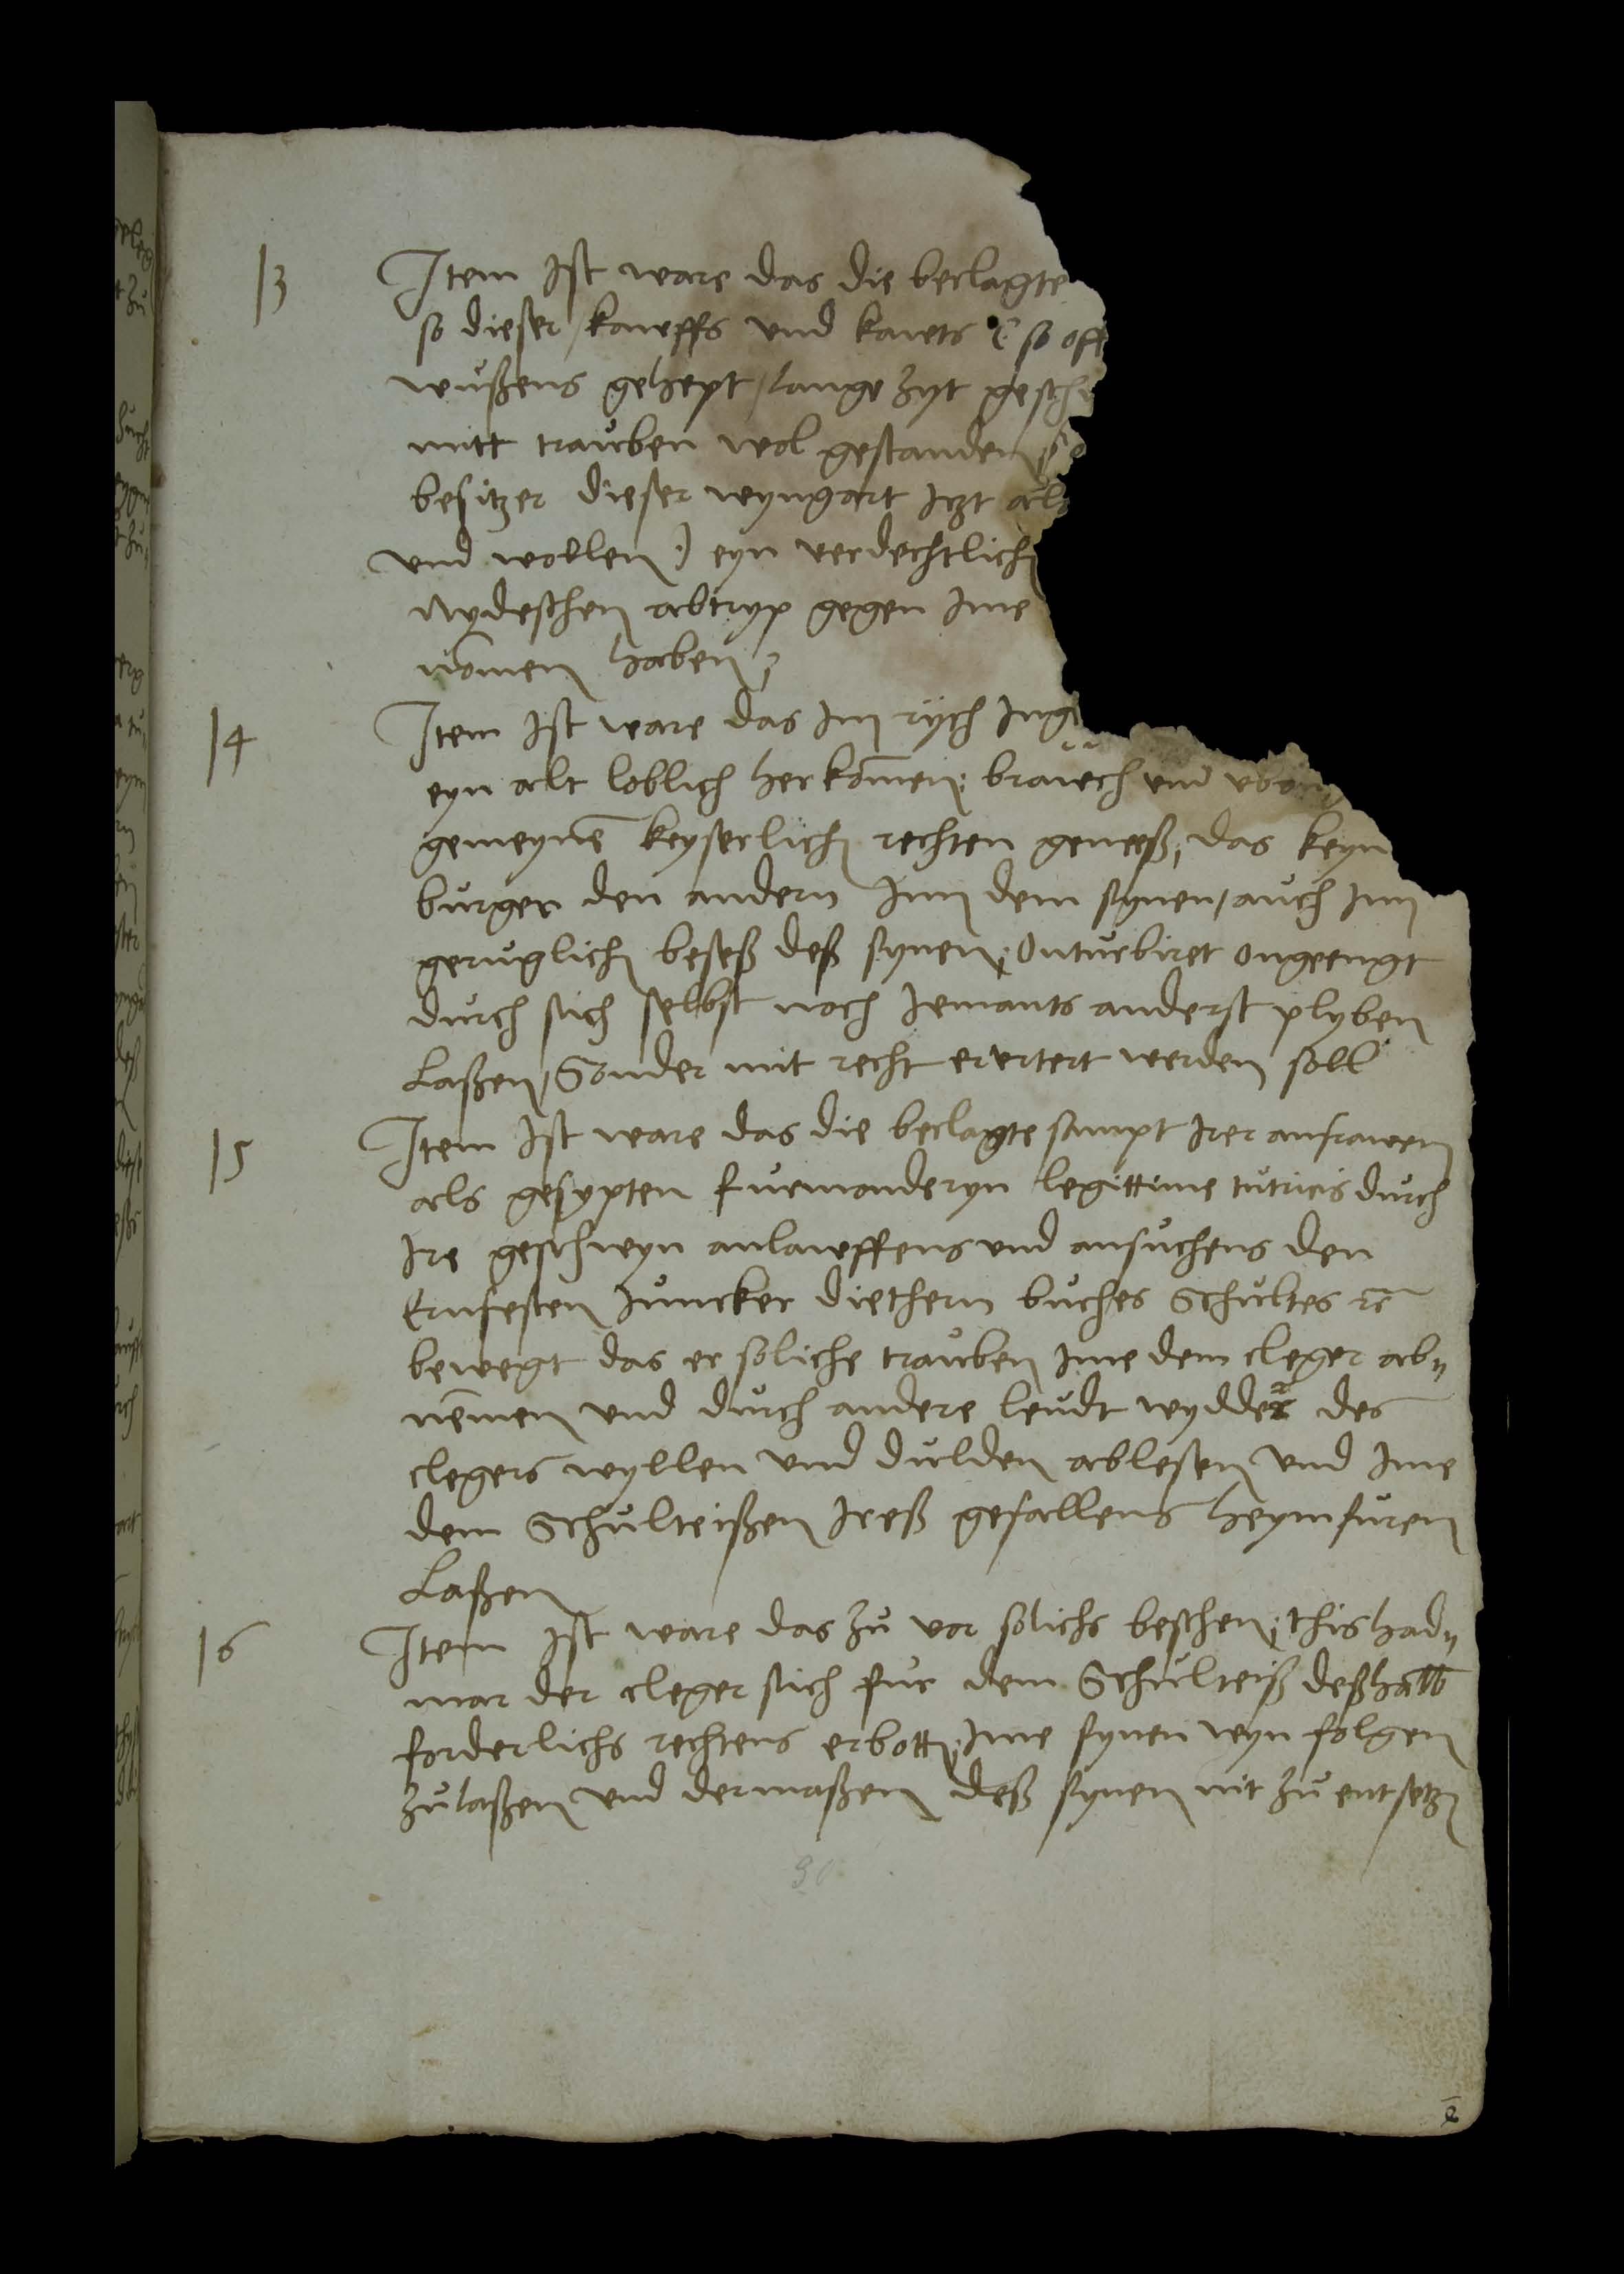 13 Item Ist ware das die beclagte
so dieser / kaueffs und kauets (: so off
wußens gehept / lange zyt gesch
mitt trauben wol gestanden
besitzer dieser wyngart Itzt als
und wollen :) eyn verdechtlich
Nydeschen abtryp gegen Ime
nomen haben
14 Item Ist ware das Im rych Ing
eyn alt loblich herkomen brauech und
gemeyne keyserlich rechten gemeß, das keyn
burger den andern Inn dem synen / auch Inn
geruglich beseß deß synen, Onturbiret ongeengt
durch sich selbst noch Iemants anderst plyben
Laßen / Sonder mit recht erertert werden soll
15 Item Ist ware das die beclagte sampt Irer anfrawen
als gesypten furmonderyn legittime tutricis durch
Ire geschweyn anlaueffens und ansuchens den
Ernfesten Juncker Diethern buches Schultes rc
bewegt das er soliche trauben Ime dem cleger ab„
nemen und durch andere leudt wydder des
clegers wyllen und dulden ablesen und Ime
dem Schulteißen Ireß gefallens heymfuren
Laßen
16 Item Ist ware das zu vor solichs beschen, this had„
mar der cleger sich fur dem Schulteiß deßhalb
forderlichs rechtens erbotten, Ime synen wyn folgen
zulaßen und dermaßen deß synen nit zu entsetzen
30